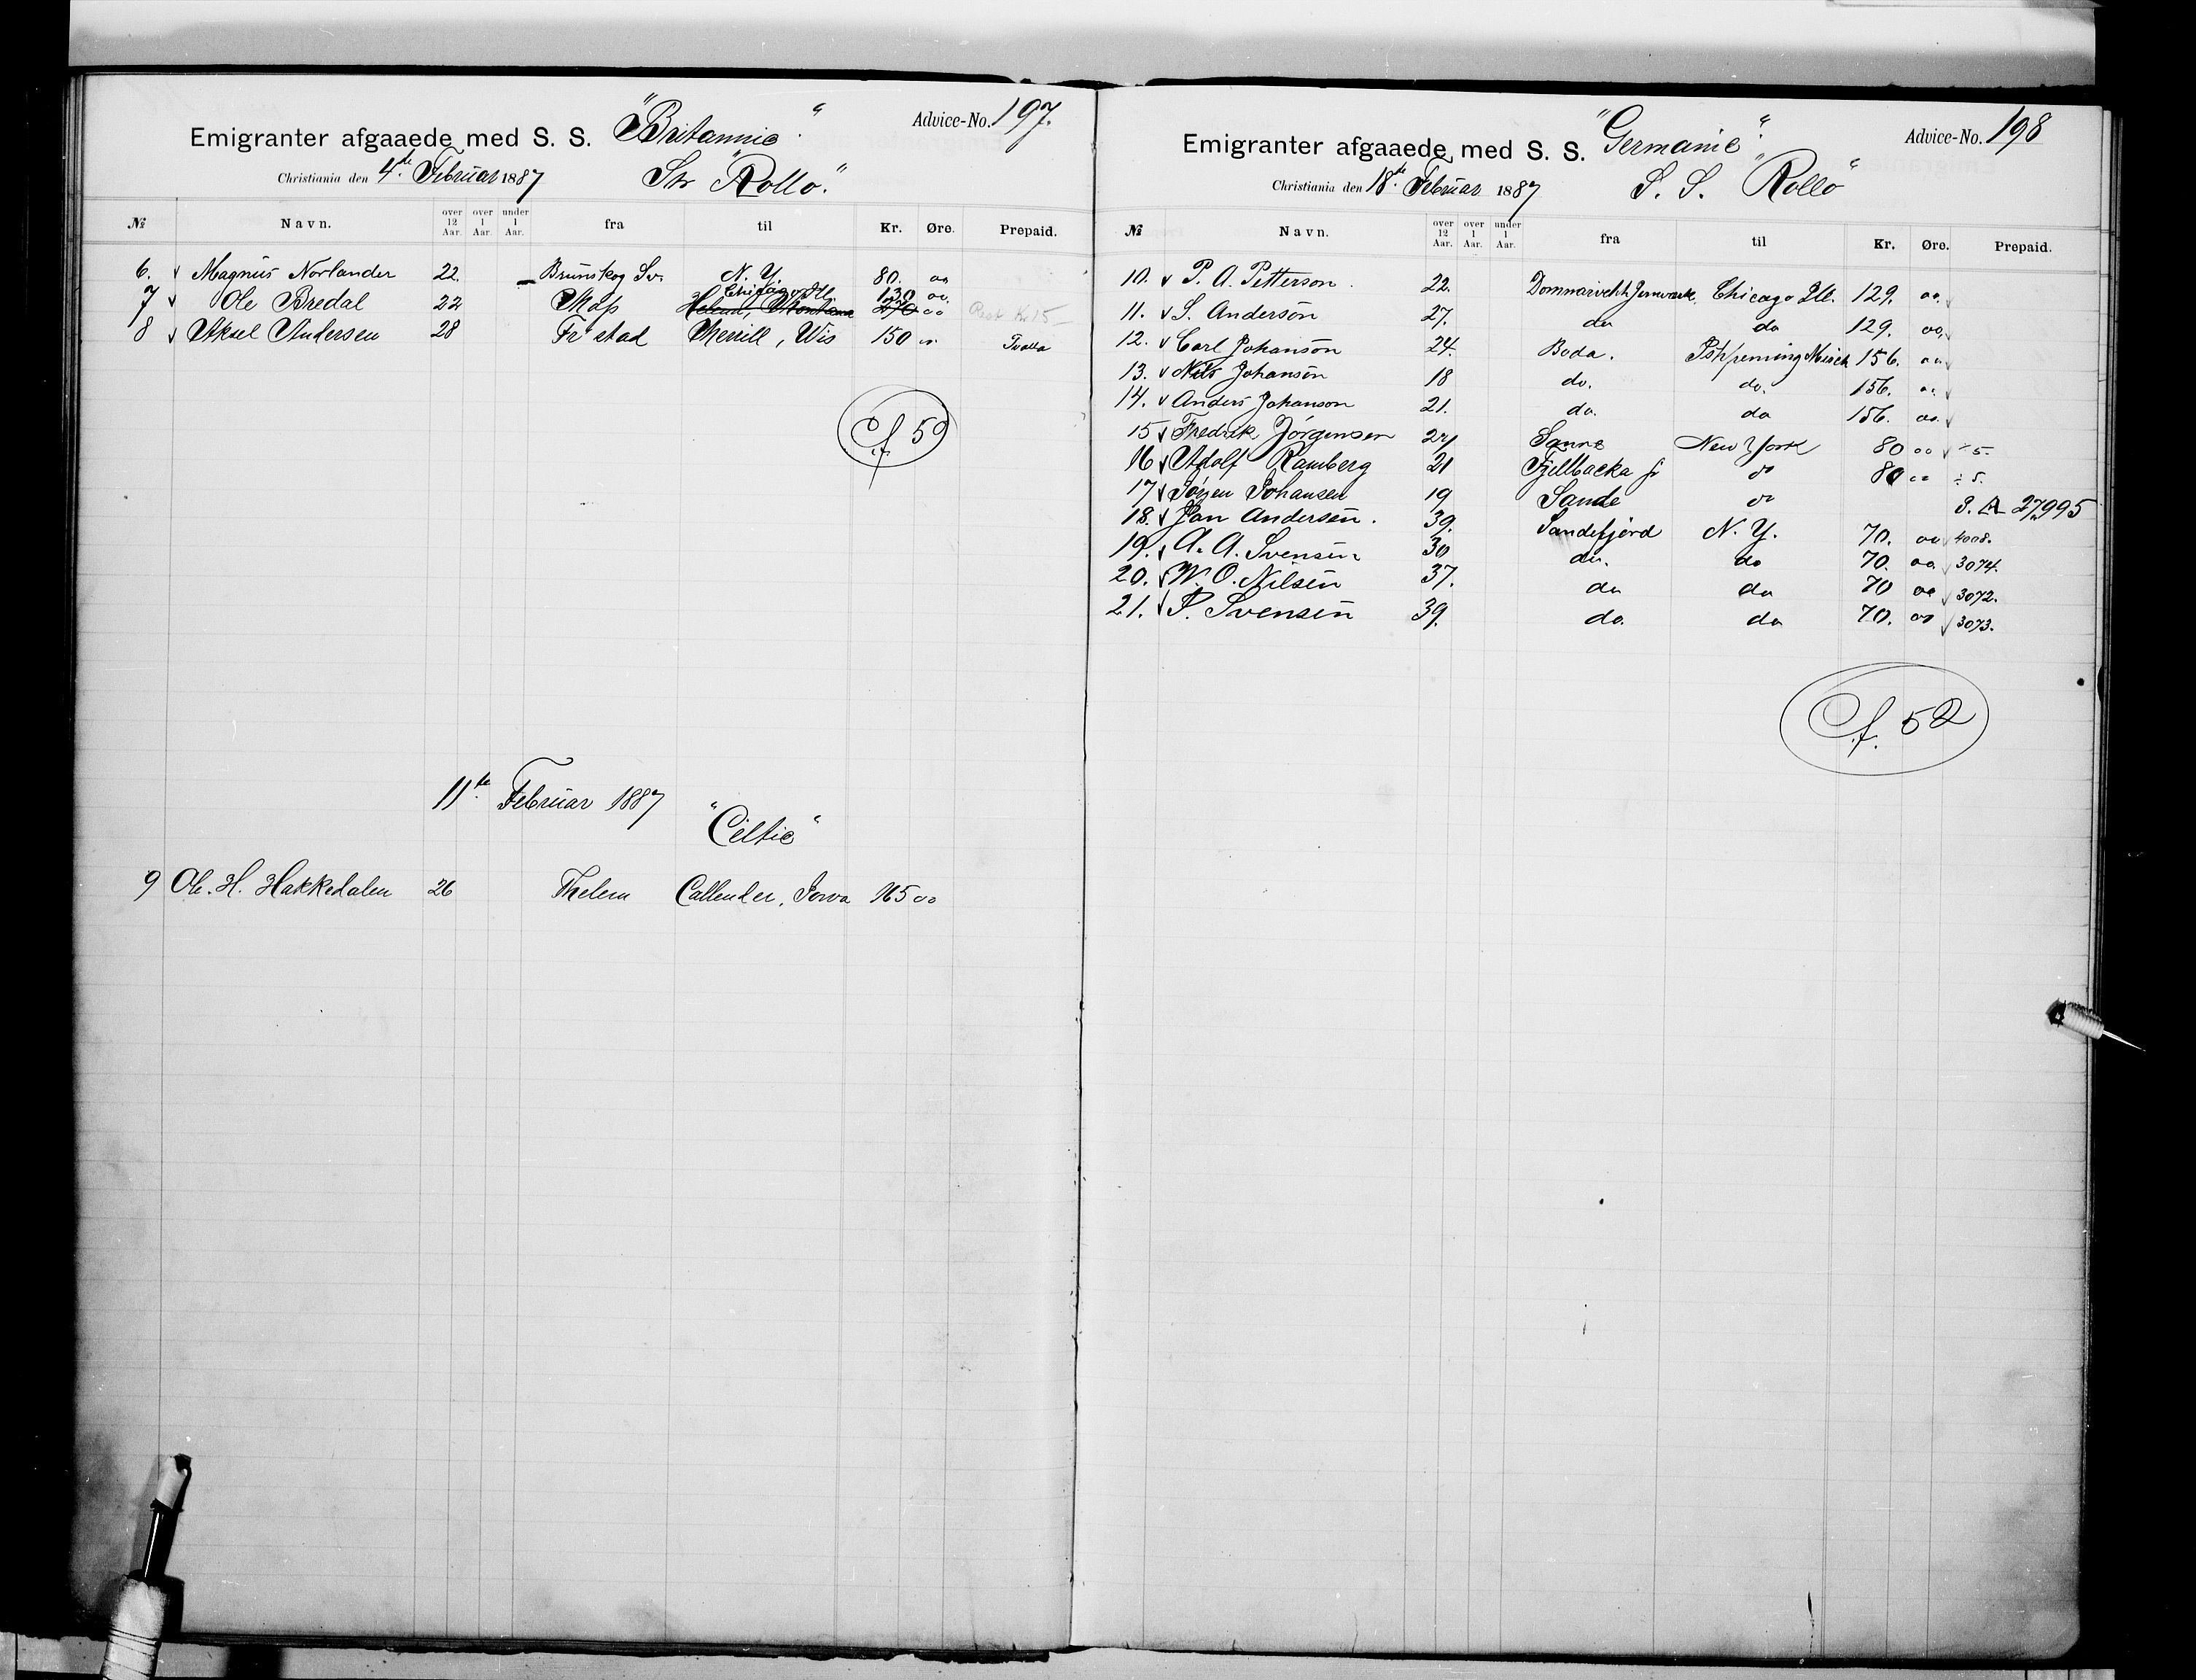 Emigranter afgaaede med S. S. "Britannic" Advice-No. 197.
Christiania den 4.de Februar 1887 Str "Rollo."
№ Navn. over 12 Aar. over 1 Aar. under 1 Aar. fra til Kr. Øre. Prepaid.
6. Magnus Norlander 22. Brunskog Sv. N. Y. 80. oo
Chicago Ill 130 oo.
7 Ole Bredal 22 Helena, Montana 270 oo Rest Kr 15
8 Aksel Andersen 28 Fr stad Merrill, Wis 150
Cf 50
11te Februar 1887
"Celtic"
9 Ole. H. Hakkedalen 26 Thelem Callender, Iowa 165 oo
Emigranter afgaaede med S. S. "Germanic". Advice-No. 198
Christiania den 18.de Februar 1887 S. S. "Rollo"
№ Navn. over 12 Aar. over 1 Aar. under 1 Aar. fra til Kr. Øre. Prepaid.
10. P. A. Petterson. 22. Chicago Ill. 129. oo.
11. S. Anderson 27. do do 129. oo.
12. Carl Johanson 24. Boda. 156. oo
13. Nils Johanson 18 do. do. 156. oo
14. Anders Johanson 21. do. do 156. oo.
15 Fredrik Jørgensen 24 Sanne New York 80 oo ÷ 5.
16 Adolf Ramberg 21 Fjellbacka do 80 oo ÷ 5.
17 Jørgen Johansen 19 Sande do 27995
18. Jan Andersen. 39. Sandefjord N. Y. 70. oo 4008.
19. A. A. Svensen 30 do. do 70. oo. 3074.
20. W. O. Nilsen 37. do do 70 oo 3072.
21. P. Svensen 39. do. do 70. oo 3073.
Cf. 52